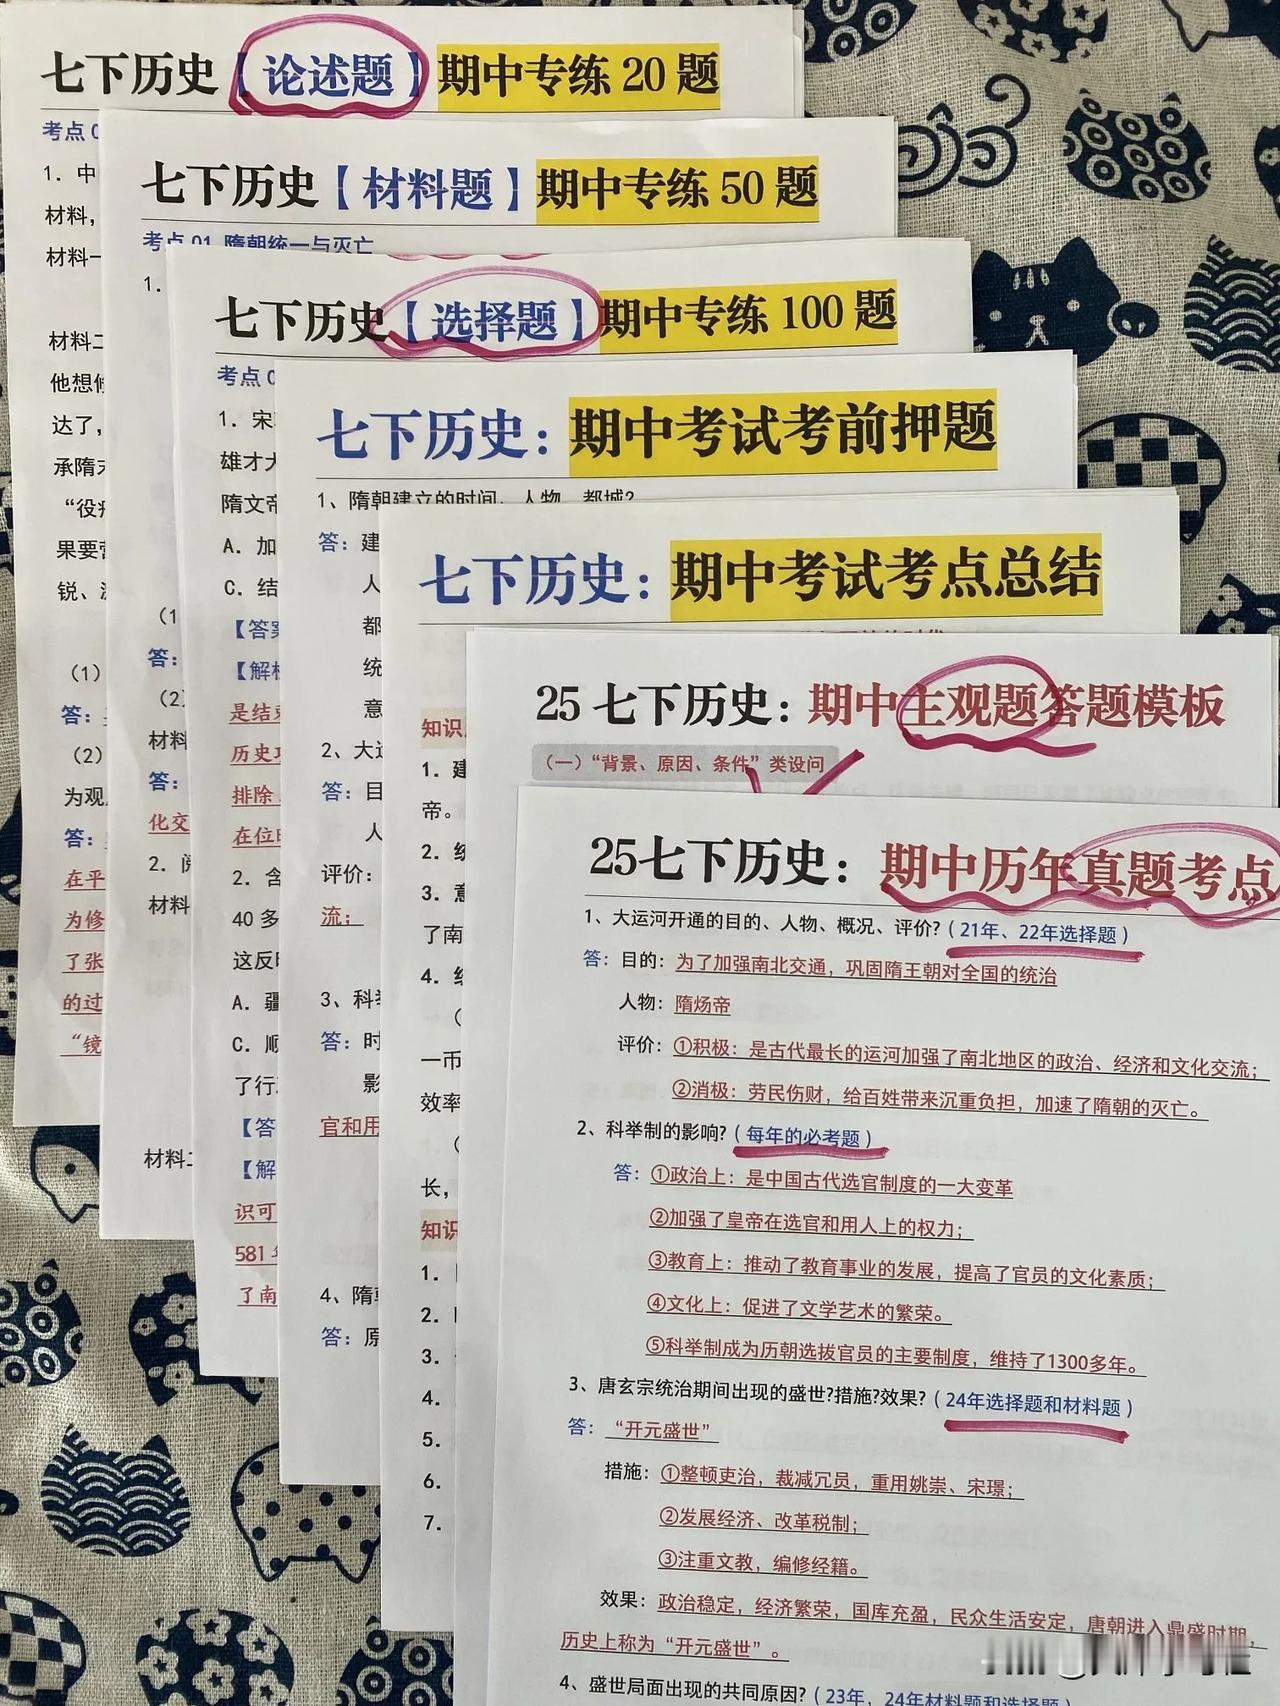 七下历史【论述题】期中专练 20 题
考点 0
1. 中
材料,
材料一
材料二
他想
达了,
承隋末
“役
果要
锐、
(1)
答:
(2)
为观
答:
在平
为修
了张
的过
“镜
七下历史【材料题】期中专练 50 题
考点 01 隋朝统一与灭亡
1.
(1
答:
(2
材料
答:
化交
2. 阅
材料
材料二
七下历史【选择题】期中专练 100 题
考点 0
1. 宋
雄才大
隋文帝
A. 加
C. 结
【答案
【解析
是结束
历史
排除
在位时
2. 含
40 多
这反映
A. 疆
C. 顺
了行
【答
【解
识可
581年
了南
七下历史: 期中考试考前押题
1、隋朝建立的时间、人物、都城?
答: 建
人
都
统
意
2、大运
答: 目
人
评价:
流;
3、科举
答: 时
影
官和用
4、隋朝
答: 原
七下历史: 期中考试考点总结
知识
1. 建
帝。
2. 统
3. 意
了南
4. 经
(
一币
效率
(
长,
知识
1.
2.
3.
4.
5.
6.
7.
25 七下历史: 期中主观题答题模板
(一)“背景、原因、条件”类设问
25七下历史: 期中历年真题考点
1、大运河开通的目的、人物、概况、评价?(21年、22年选择题)
答: 目的: 为了加强南北交通，巩固隋王朝对全国的统治
人物: 隋炀帝
评价: ①积极: 是古代最长的运河加强了南北地区的政治、经济和文化交流;
②消极: 劳民伤财，给百姓带来沉重负担，加速了隋朝的灭亡。
2、科举制的影响?(每年的必考题)
答: ①政治上: 是中国古代选官制度的一大变革
②加强了皇帝在选官和用人上的权力;
③教育上: 推动了教育事业的发展，提高了官员的文化素质;
④文化上: 促进了文学艺术的繁荣。
⑤科举制成为历朝选拔官员的主要制度，维持了1300多年。
3、唐玄宗统治期间出现的盛世?措施?效果?(24年选择题和材料题)
答: “开元盛世”
措施: ①整顿吏治，裁减冗员，重用姚崇、宋璟;
②发展经济、改革税制;
③注重文教，编修经籍。
效果: 政治稳定，经济繁荣，国库充盈，民众生活安定，唐朝进入鼎盛时期，
历史上称为“开元盛世”。
4、盛世局面出现的共同原因?(23年、24年材料题和选择题)